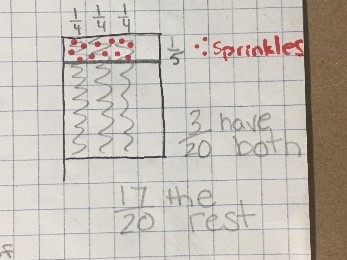 1/4 1/4 1/4
1/5 Sprinkles
3/20 have
both
17/20 the
rest